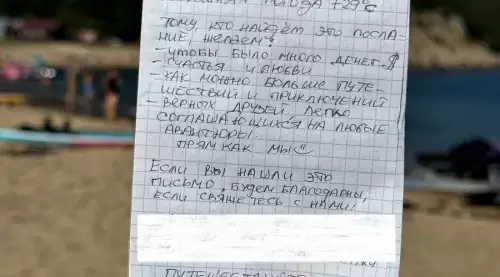 ПОГОДА +29°С
ТОМУ, КТО НАЙДЁТ ЭТО ПОСЛА-
НИЕ, ЖЕЛАЕМ:
- ЧТОБЫ БЫЛО МНОГО ДЕНЕГ $
- СЧАСТЬЯ И ЛЮБВИ
- КАК МОЖНО БОЛЬШЕ ПУТЕ-
ШЕСТВИЙ И ПРИКЛЮЧЕНИЙ
- ВЕРНЫХ ДРУЗЕЙ ЛЕГКО
СОГЛАШАЮЩИХСЯ НА ЛЮБЫЕ
АВАНТЮРЫ.
ПРЯМ КАК МЫ
ЕСЛИ ВЫ НАШЛИ ЭТО
ПИСЬМО, БУДЕМ БЛАГОДАРНЫ,
ЕСЛИ СВЯЖЕТЕСЬ С НАМИ: